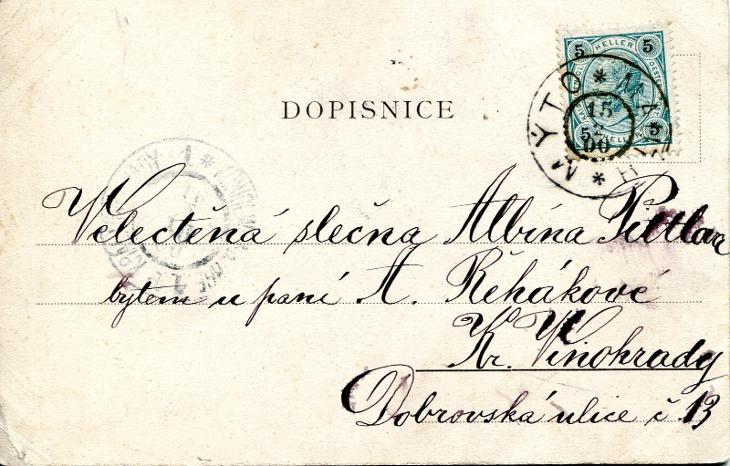 DOPISNICE
5 HELLER 5
5 HELLER 5
MÝTO
15
2
00
Velectěná slečna Albína
bytem u paní A. Řehákové
Kr. Vinohrady
Dobrovská ulice č 13